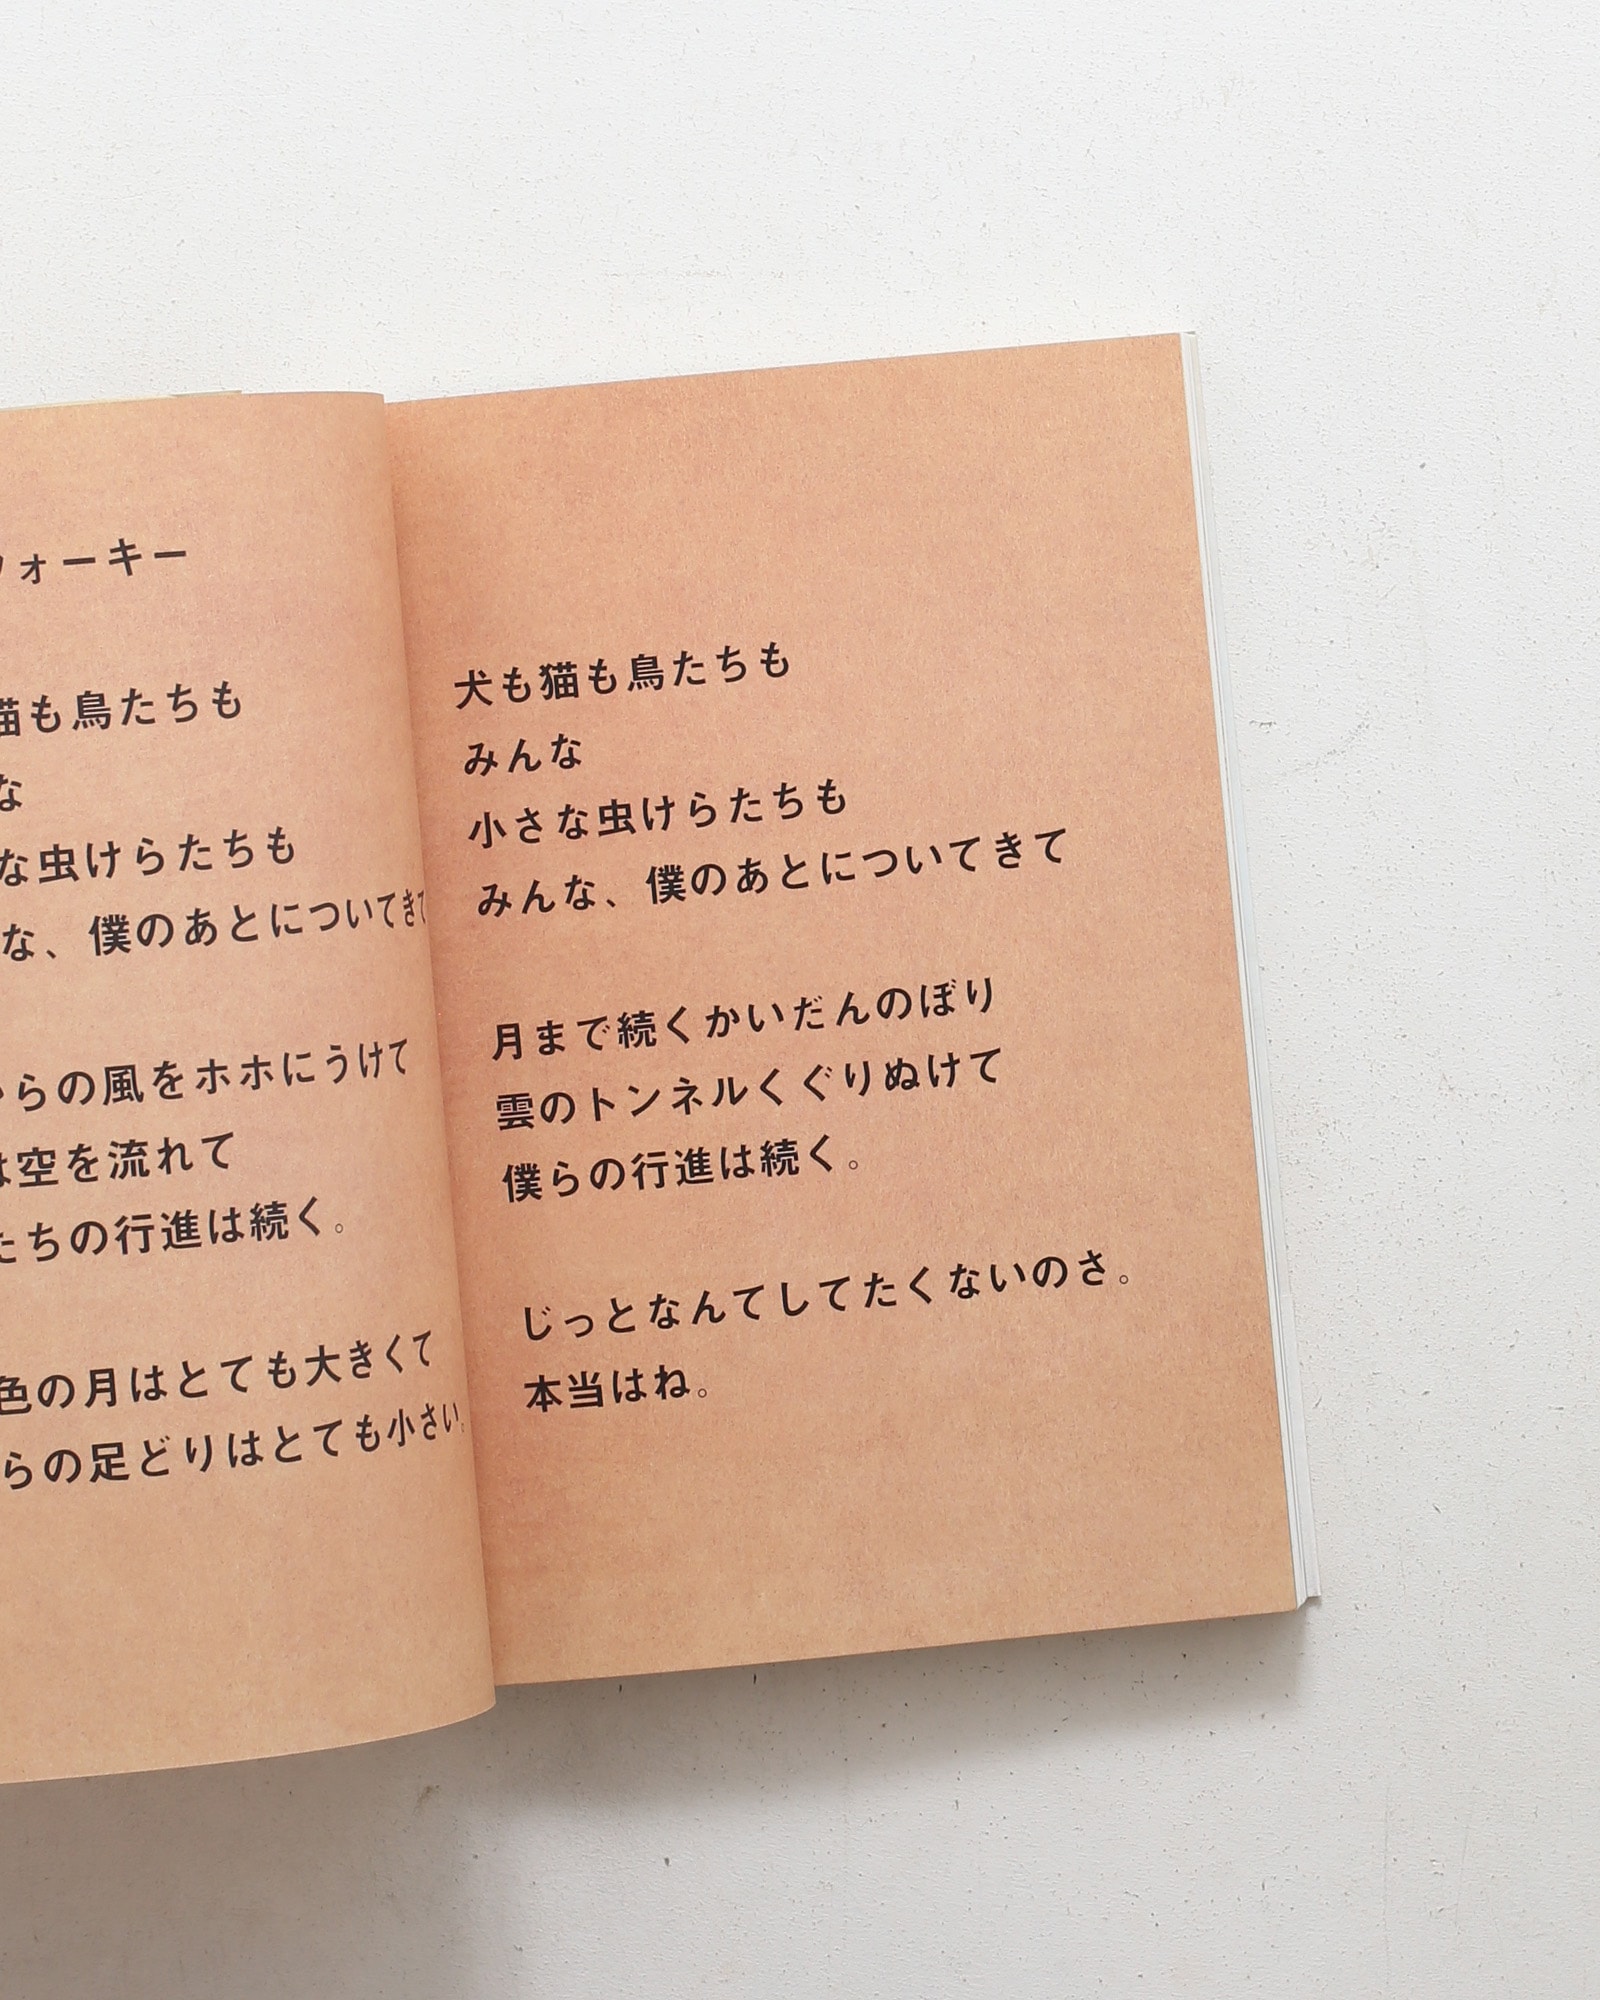 ォーキー
猫も鳥たちも
な
な虫けらたちも
な、僕のあとについてきて
らの風をホホにうけて
は空を流れて
たちの行進は続く。
色の月はとても大きくて
らの足どりはとても小さい。
犬も猫も鳥たちも
みんな
小さな虫けらたちも
みんな、僕のあとについてきて
月まで続くかいだんのぼり
雲のトンネルくぐりぬけて
僕らの行進は続く。
じっとなんてしてたくないのさ。
本当はね。